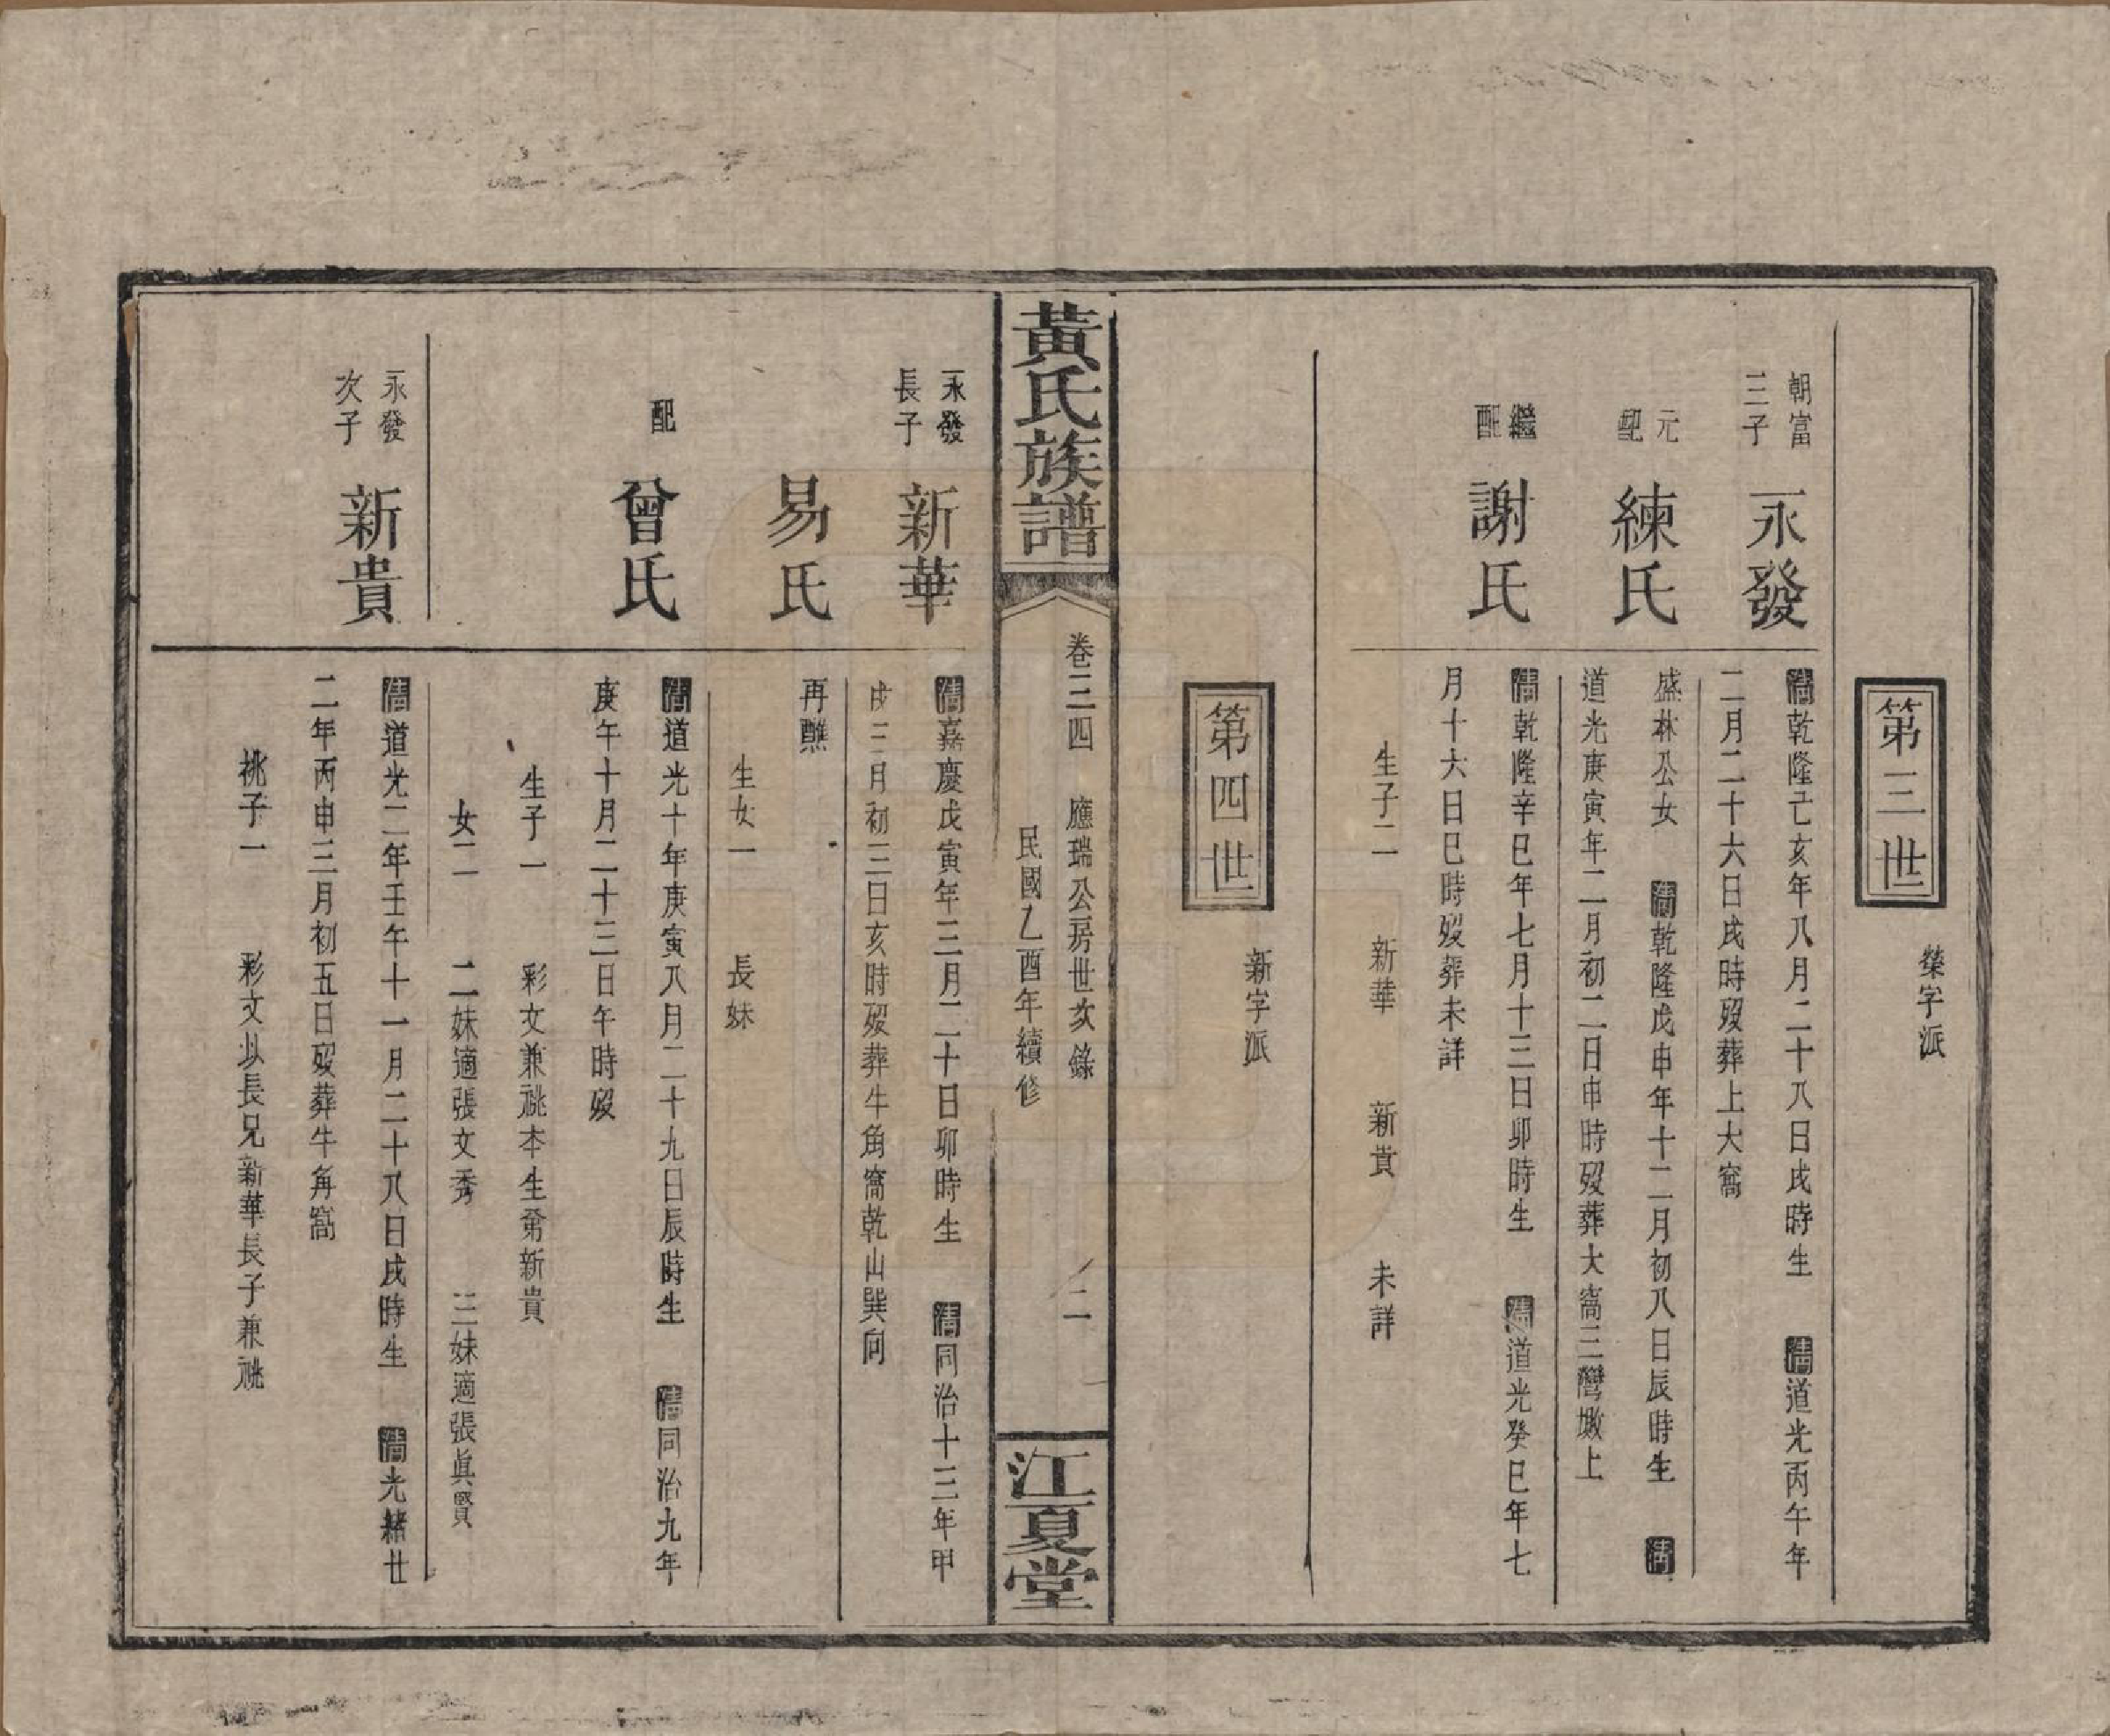 第三世
榮字派
朝富三子
永發
清乾隆己亥年八月二十八日戌時生 清道光丙午年
二月二十六日戌時歿葬上大窩
元配
練氏
盛林公女 清乾隆戊申年十二月初八日辰時生 清
道光庚寅年二月初二日申時歿葬大窩三灣墩上
繼配
謝氏
清乾隆辛巳年七月十三日卯時生 清道光癸巳年七
月十六日巳時歿葬未詳
生子二 新華 新貴 未詳
第四世
新字派
黃氏族譜
卷三四 應瑞公房世亥錄
民國乙酉年續修
二
江夏堂
永發長子
新華
清嘉慶戊寅年三月二十日卯時生 清同治十三年甲
戌三月初三日亥時歿葬牛角窩乾山巽向
易氏
再醮
生女一 長妹
配
曾氏
清道光十年庚寅八月二十九日辰時生 清同治九年
庚午十月二十三日午時歿
生子一 彩文兼祧本生弟新貴
女二 二妹適張文秀 三妹適張眞賢
永發次子
新貴
清道光二年壬午十一月二十八日戌時生 清光緒廿
二年丙申三月初五日歿葬牛角窩
祧子一 彩文以長兄新華長子兼祧